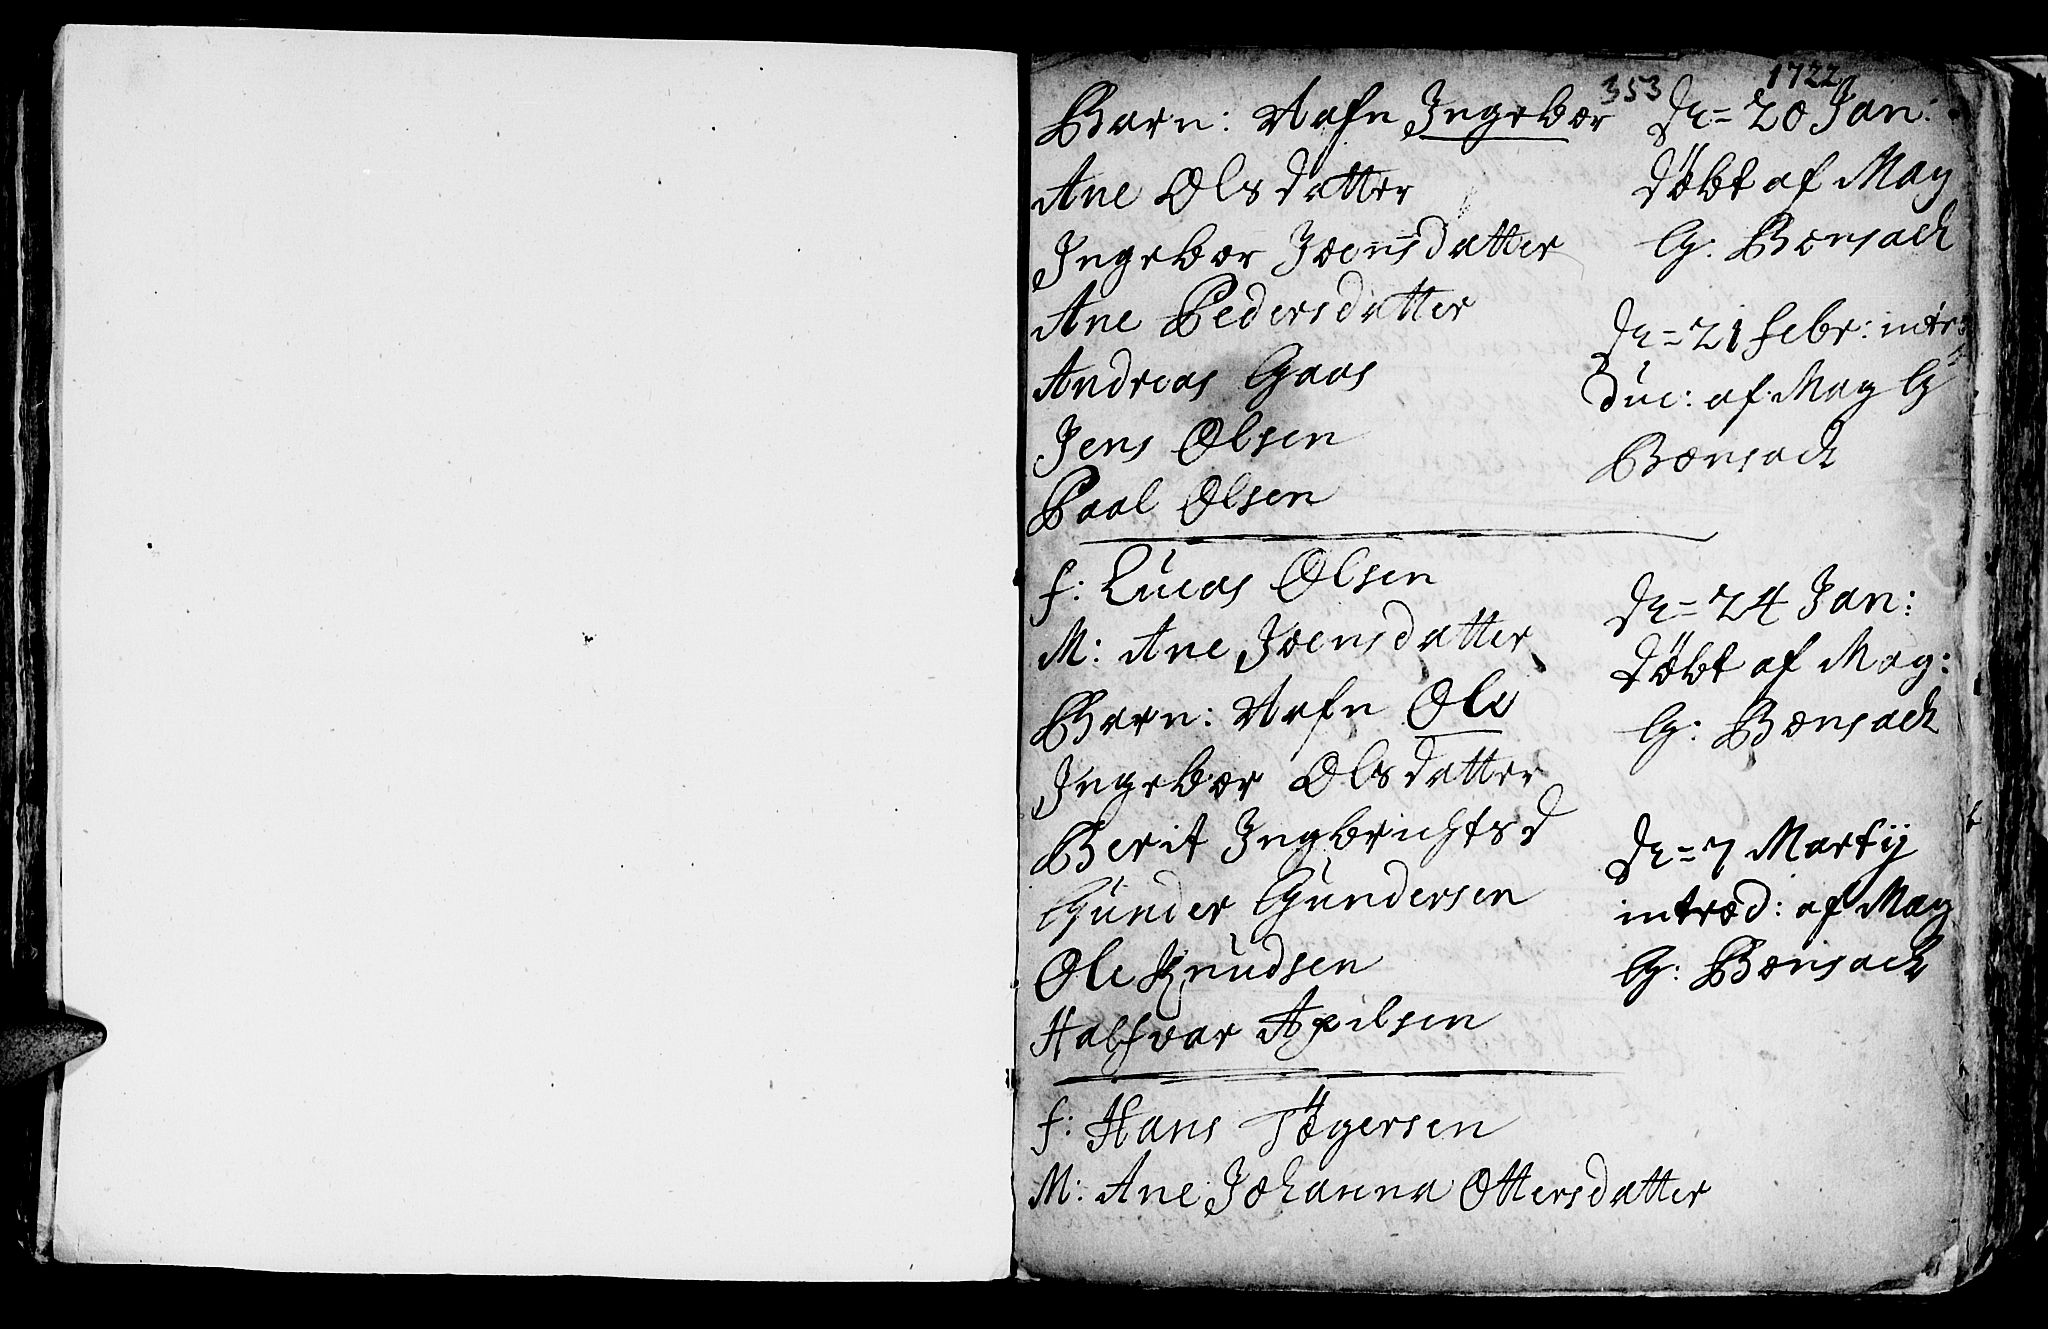 353
1722
Barn: Nafn Ingebor
Ane Olsdatter
Ingebor Joensdatter
Ane Pedersdatter
Andreas Gaas
Jens Olsen
Paal Olsen
d= 20 Jan:
döbt af Mag
G: Bornsack
d= 21 febr: intro
duc: af Mag G:
Bornsack
f: Lucas Olsen
M: Ane Joensdatter
Barn: Nafn Ole
Ingebor Olsdatter
Berit Ingbrichtsd
Gunder Gundersen
Ole Knudsen
Halfvar Axilsen
d= 24 Jan:
döbt af Mag:
G: Bornsack
d= 7 Martij
introd: af Mag
G: Bornsack
f: Hans Tögersen
M: Ane Johanna Ottersdatter